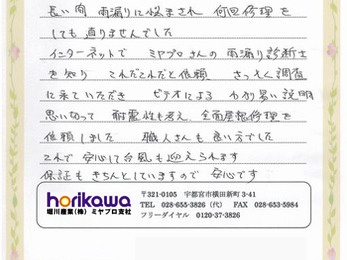 長い間 雨漏りに悩まされ 何回修理を
しても直りませんでした
インターネットで ミヤプロさんの雨漏り診断士
を知り これだこれだと依頼 さっそく調査
に来ていただき ビデオによる わかり易い説明
思い切って 耐震性も考え 全面屋根修理を
依頼しました 職人さんも良い方でした
これで安心して台風も迎えられます
保証もきちんとしていますので安心です
horikawa
堀川産業(株)ミヤプロ支社
〒321-0105 宇都宮市横田新町 3-41
TEL 028-655-3826(代) FAX 028-653-5984
フリーダイヤル 0120-37-3826